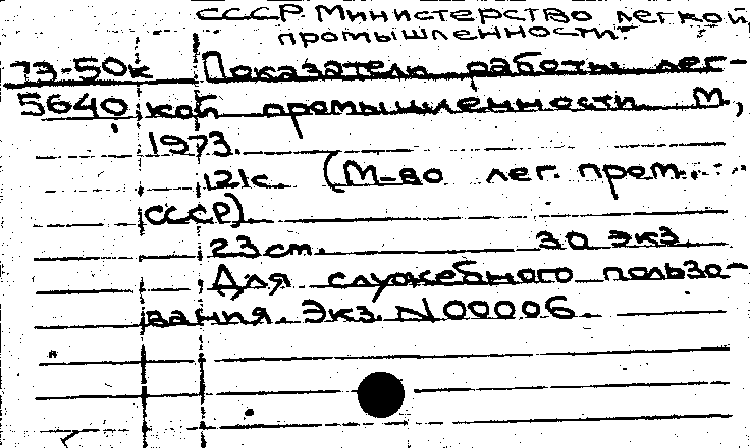 СССР. Министерство легкой
промышленности.
73-50к Показатели работы лег-
5640 кой промышленности. М.,
1973.
121с. (М-во лег. пром.
СССР).
23см. 30 экз.
Для служебного пользо-
вания. Экз. N 00006.